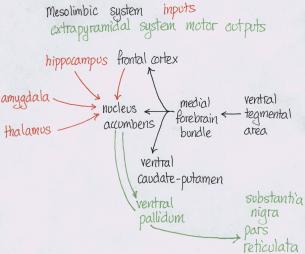 Mesolimbic system inputs
extrapyramidal system motor outputs
hippocampus frontal cortex
amygdala
thalamus
nucleus
accumbens
medial
forebrain
bundle
ventral
tegmental
area
ventral
caudate-putamen
ventral
pallidum
substantia
nigra
pars
reticulata